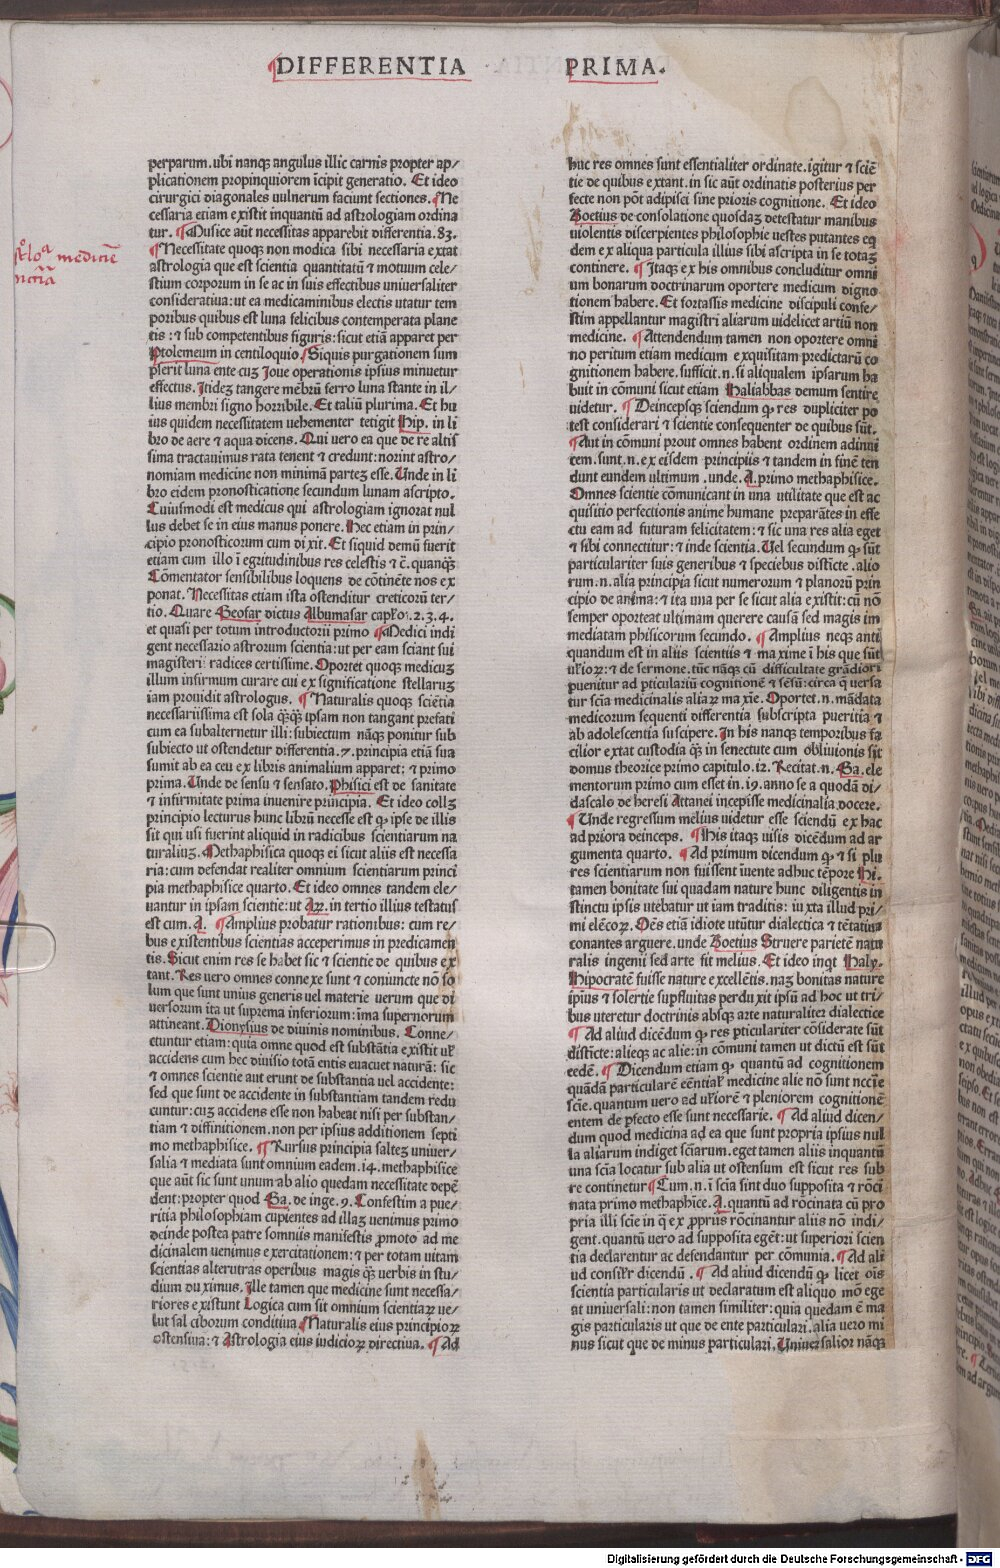 DIFFERENTIA PRIMA.
perparum. ubi nanqȝ angulus illic carnis propter ap/
plicationem propinquiorem ĩcipit generatio. Et ideo
cirurgici diagonales uulnerum faciunt sectiones. ¶Ne
cessaria etiam existit inquantũ ad astrologiam ordina
tur. ¶Musice aũt necessitas apparebit differentia. 83.
¶Necessitate quoqȝ non modica sibi necessaria extat
astrologia que est scientia quantitatũ ⁊ motuum cele/
stium corporum in se ac in suis effectibus uniuersaliter
consideratiua: ut ea medicaminibus electis utatur tem
poribus quibus est luna felicibus contemperata plane
tis : ⁊ sub competentibus figuris: sicut etiã apparet per
Ptolemeum in centiloquio. ¶Siquis purgationem sum
pserit luna ente cuȝ Joue operationis ipsius minuetur
effectus. Itideȝ tangere mẽbrũ ferro luna stante in il/
lius membri signo horribile. Et taliũ plurima. Et hu
ius quidem necessitatem uehementer tetigit Hip. in li
bro de aere ⁊ aqua dicens. Qui uero ea que de re altis
sima tractauimus rata tenent ⁊ credunt: norint astro/
nomiam medicine non minimã parteȝ esse. Unde in li
bro eidem pronosticatione secundum lunam ascripto.
Cuiusmodi est medicus qui astrologiam ignorat nul
lus debet se in eius manus ponere. Hec etiam in prin/
cipio pronosticorum cum dixit. Et siquid demũ fuerit
etiam cum illo ĩ egritudinibus res celestis ⁊ c̃. quanqȝ
Cõmentator sensibilibus loquens de cõtinẽte nos ex
ponat. Necessitas etiam ista ostenditur creticorũ ter/
tio. Quare Geofar dictus Albumasar capło. 2. 3. 4.
et quasi per totum introductorii primo ¶Medici indi
gent necessario astrorum scientia: ut per eam sciant sui
magisterii radices certissime. Oportet quoqȝ medicuȝ
illum infirmum curare cui ex significatione stellaruȝ
iam prouidit astrologus. ¶Naturalis quoqȝ sciẽtia
necessariissima est sola q̃ȝq̃ȝ ipsam non tangant prefati
cum ea subalternetur illi: subiectum nãqȝ ponitur sub
subiecto ut ostendetur differentia. 7. principia etiã sua
sumit ab ea ceu ex libris animalium apparet: ⁊ primo
prima. Unde de sensu ⁊ sensato. Phisici est de sanitate
⁊ infirmitate prima inuenire principia. Et ideo collȝ
principio lecturus hunc librũ necesse est ꝙ ipse de illis
sit qui usi fuerint aliquid in radicibus scientiarum na
turaliuȝ. Methaphisica quoqȝ ei sicut aliis est necessa
ria: cum defendat realiter omnium scientiarum princi
pia methaphisice quarto. Et ideo omnes tandem ele/
uantur in ipsam scientie: ut Aꝝ. in tertio illius testatus
est cum. A. ¶Amplius probatur rationibus: cum re/
bus existentibus scientias acceperimus in predicamen
tis. Sicut enim res se habet sic ⁊ scientie de quibus ex
tant. Res uero omnes connexe sunt ⁊ coniuncte nõ so
lum que sunt unius generis uel materie uerum que di
uersorum ita ut suprema inferiorum: ĩma supernorum
attineant. Dionysius de diuinis nominibus. Conne/
ctuntur etiam: quia omne quod est substãtia existit uł
accidens cum hec diuisio totã entis euacuet naturã: sic
⁊ omnes scientie aut erunt de substantia uel accidente:
sed que sunt de accidente in substantiam tandem redu
cuntur: cuȝ accidens esse non habeat nisi per substan/
tiam ⁊ diffinitionem. non per ipsius additionem septi
mo methaphisice. ¶Rursus principia salteȝ uniuer/
salia ⁊ mediata sunt omnium eadem. 14. methaphisice
que aũt sic sunt unum ab alio quedam necessitate depẽ
dent: propter quod Ga. de inge. 9. Confestim a pue/
ritia philosophiam cupientes ad illaȝ uenimus primo
deinde postea patre somniis manifestis ꝓmoto ad me
dicinalem uenimus exercitationem: ⁊ per totam uitam
scientias alterutras operibus magis q̃ȝ uerbis in stu/
dium duximus. Ille tamen que medicine sunt necessa/
riores existunt Logica cum sit omnium scientiaꝝ ue/
lut sal ciborum conditiua ¶Naturalis eius principioꝝ
ostensiua: ⁊ Astrologia eius iudicioꝝ directiua. ¶Ad
huc res omnes sunt essentialiter ordinate. igitur ⁊ sciẽ
tie de quibus extant. in sic aũt ordinatis posterius per
fecte non põt adipisci sine prioris cognitione. Et ideo
Boetius de consolatione quosdaȝ detestatur manibus
uiolentis discerpientes philosophie uestes putantes eq
dem ex aliqua particula illius sibi ascripta in se totaȝ
continere. ¶Itaqȝ ex his omnibus concluditur omni
um bonarum doctrinarum oportere medicum digno
tionem habere. Et fortassis medicine discipuli confe/
stim appellantur magistri aliarum uidelicet artiũ non
medicine. ¶Attendendum tamen non oportere omni
no peritum etiam medicum exquisitam predictarũ co
gnitionem habere. sufficit. n. si aliqualem ipsarum ha
buit in cõmuni sicut etiam Haliabbas demum sentire
uidetur. ¶Deincepsqȝ sciendum ꝙ res dupliciter po
test considerari ⁊ scientie consequenter de quibus sũt.
¶Aut in cõmuni prout omnes habent ordinem adinui
cem. sunt. n. ex eisdem principiis ⁊ tandem in finẽ ten
dunt eundem ultimum. unde. A. primo methaphisice.
Omnes scientie cõmunicant in una utilitate que est ac
quisitio perfectionis anime humane preparãtes in effe
ctu eam ad futuram felicitatem: ⁊ sic una res alia eget
⁊ sibi connectitur: ⁊ inde scientia. Uel secundum ꝙ sũt
particulariter suis generibus ⁊ speciebus distĩcte. alio
rum. n. alia principia sicut numerorum ⁊ planorũ prin
cipio de anima: ⁊ ita una per se sicut alia existit: cũ nõ
semper oporteat ultimam querere causã sed magis im
mediatam phisicorum secundo. ¶Amplius neqȝ anti
quandum est in aliis scientiis ⁊ maxime ĩ his que sũt
ułioꝝ: ⁊ de sermone. tũc nãqȝ cũ difficultate grãdiori
puenitur ad pticulariũ cognitionẽ ⁊ sẽsũ: circa q̃ uersa
tur scĩa medicinalis aliaꝝ maxĩe. Oportet. n. mãdata
medicorum sequenti differentia subscripta pueritia ⁊
ab adolescentia suscipere. In his nanqȝ temporibus fa
cilior extat custodia q̃ȝ in senectute cum obliuionis sit
domus theorice primo capitulo. 12. Recitat. n. Ga. ele
mentorum primo cum esset in. 19. anno se a quodã di/
dascalo de heresi Attanei incepisse medicinalia docere.
¶Unde regressum melius uidetur esse sciendũ ex hac
ad priora deinceps. ¶His itaqȝ uisis dicẽdum ad ar
gumenta quarto. ¶Ad primum dicendum ꝙ ⁊ si plu
res scientiarum non fuissent ĩuente adhuc tẽpore Hi.
tamen bonitate sui quadam nature hunc diligentis in
stinctu ipsis utebatur ut iam traditis: iuxta illud pri/
mi elẽcoꝝ. Oẽs etiã idiote utũtur dialectica ⁊ tẽtatiua
conantes arguere. unde Boetius Struere parietẽ natu
ralis ingenii sed arte fit melius. Et ideo inqt Haly.
Hipocratẽ fuisse nature excellẽtis. naȝ bonitas nature
ipĩus ⁊ solertie supfluitas perduxit ipsũ ad hoc ut tri/
bus uteretur doctrinis absqȝ arte naturaliter dialectice
¶Ad aliud dicẽdum ꝙ res pticulariter cõsiderate sũt
distĩcte: alieqȝ ac alie: in cõmuni tamen ut dictũ est sũt
eedẽ. ¶Dicendum etiam ꝙ quantũ ad cognitionem
quãdã particularẽ eẽntiałr medicine alie nõ sunt nccĩe
scĩe. quantum uero ad ułiorẽ ⁊ pleniorem cognitionẽ
entem de pfecto esse sunt necessarie. ¶Ad aliud dicen/
dum quod medicina ad ea que sunt propria ipsius nul
la aliarum indiget scĩarum. eget tamen aliis inquantũ
una scĩa locatur sub alia ut ostensum est sicut res sub
re continetur ¶Cum. n. ĩ scĩa sint duo supposita ⁊ rõci
nata primo methaphĩce. A. quantũ ad rõcinata cũ pro
pria illi scĩe in q̃ ex ꝓpriis rõcinantur aliis nõ indi/
gent. quantũ uero ad supposita egẽt: ut superiori scien
tia declarentur ac defendantur per cõmunia. ¶Ad ali
ud consiłr dicendũ. ¶Ad aliud dicendũ ꝙ licet oĩs
scientia particularis ut declaratum est aliquo mõ ege
at uniuersali: non tamen similiter: quia quedam ẽ ma
gis particularis ut que de ente particulari. alia uero mi
nus sicut que de minus particulari. Uniuersalior nãqȝ
Digitalisierung gefördert durch die Deutsche Forschungsgemeinschaft - DFG